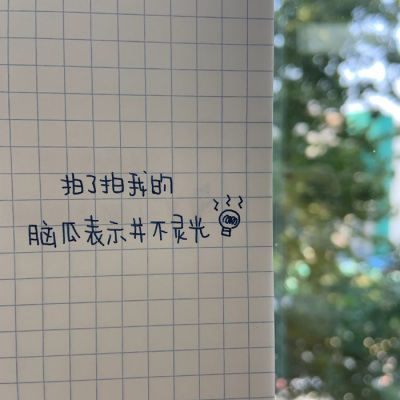 拍了拍我的
脑瓜表示并不灵光